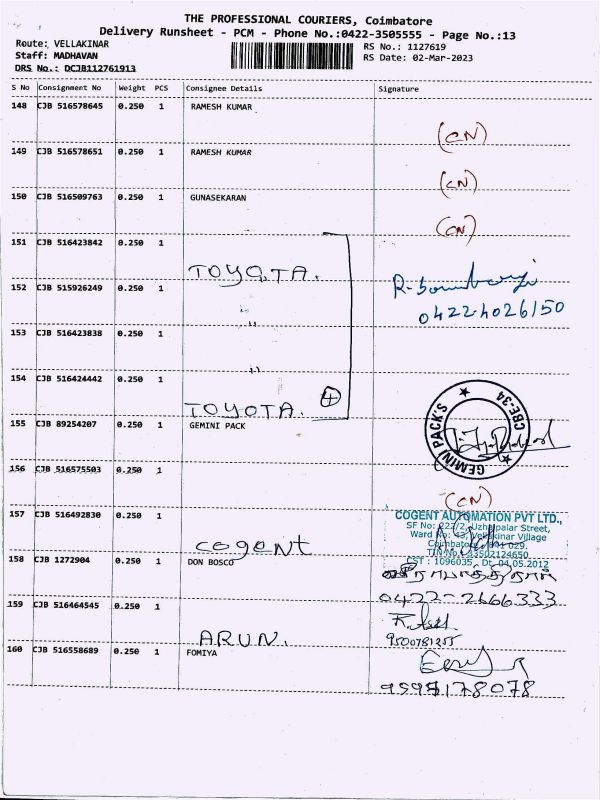 THE PROFESSIONAL COURIERS, Coimbatore
Delivery Runsheet - PCM - Phone No.:0422-3505555 - Page No.:13
Route: VELLAKINAR
Staff: MADHAVAN
DRS No.: DCJB112761913
RS No.: 1127619
RS Date: 02-Mar-2023
S No Consignment No Weight PCS Consignee Details Signature
148 CJB 516578645 0.250 1 RAMESH KUMAR
(CN)
149 CJB 516578651 0.250 1 RAMESH KUMAR
(CN)
150 CJB 516509763 0.250 1 GUNASEKARAN
(CN)
151 CJB 516423842 0.250 1
TOYOTA.
152 CJB 515926249 0.250 1
0422-4026150
"
153 CJB 516423838 0.250 1
"
154 CJB 516424442 0.250 1
TOYOTA. 4
155 CJB 89254207 0.250 1 GEMINI PACK
GEMINI PACK'S CBE-34
156 CJB 516575503 0.250 1
(CN)
157 CJB 516492830 0.250 1
COGENT AUTOMATION PVT LTD.,
SF No: 227/2, Uzhaipalar Street,
Ward No: 43, Vellakinar Village
Coimbatore 641 029.
TIN No. 33502124650
CST : 1096035 Dt. 04.05.2012
COGENT
158 CJB 1272904 0.250 1 DON BOSCO
0422-2666333
159 CJB 516464545 0.250 1
9500781255
ARUN.
160 CJB 516558689 0.250 1 FOMIYA
9597178078